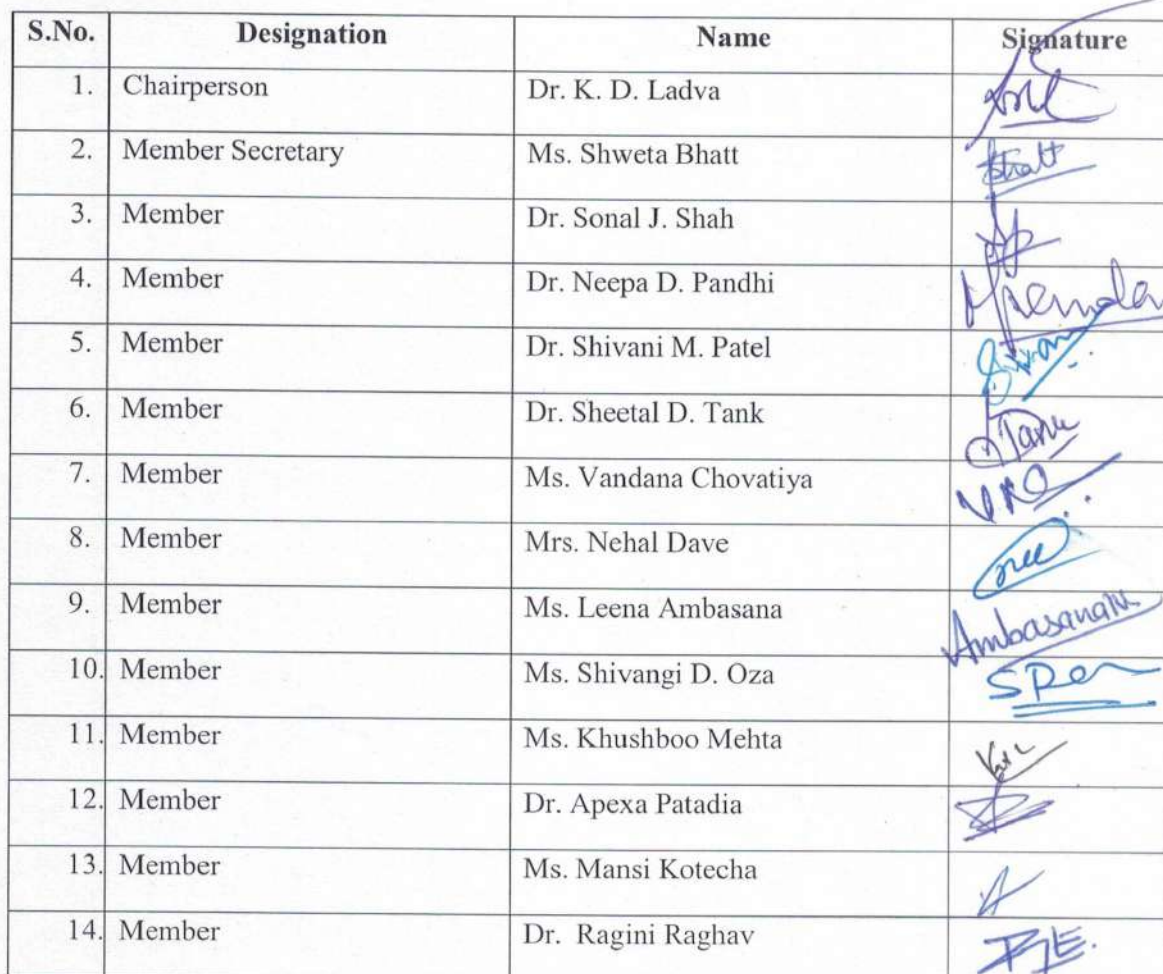 S.No. Designation Name Signature
1. Chairperson Dr. K. D. Ladva
2. Member Secretary Ms. Shweta Bhatt Bhatt
3. Member Dr. Sonal J. Shah
4. Member Dr. Neepa D. Pandhi
5. Member Dr. Shivani M. Patel
6. Member Dr. Sheetal D. Tank Tank
7. Member Ms. Vandana Chovatiya
8. Member Mrs. Nehal Dave
9. Member Ms. Leena Ambasana
10. Member Ms. Shivangi D. Oza
11. Member Ms. Khushboo Mehta
12. Member Dr. Apexa Patadia
13. Member Ms. Mansi Kotecha
14. Member Dr. Ragini Raghav